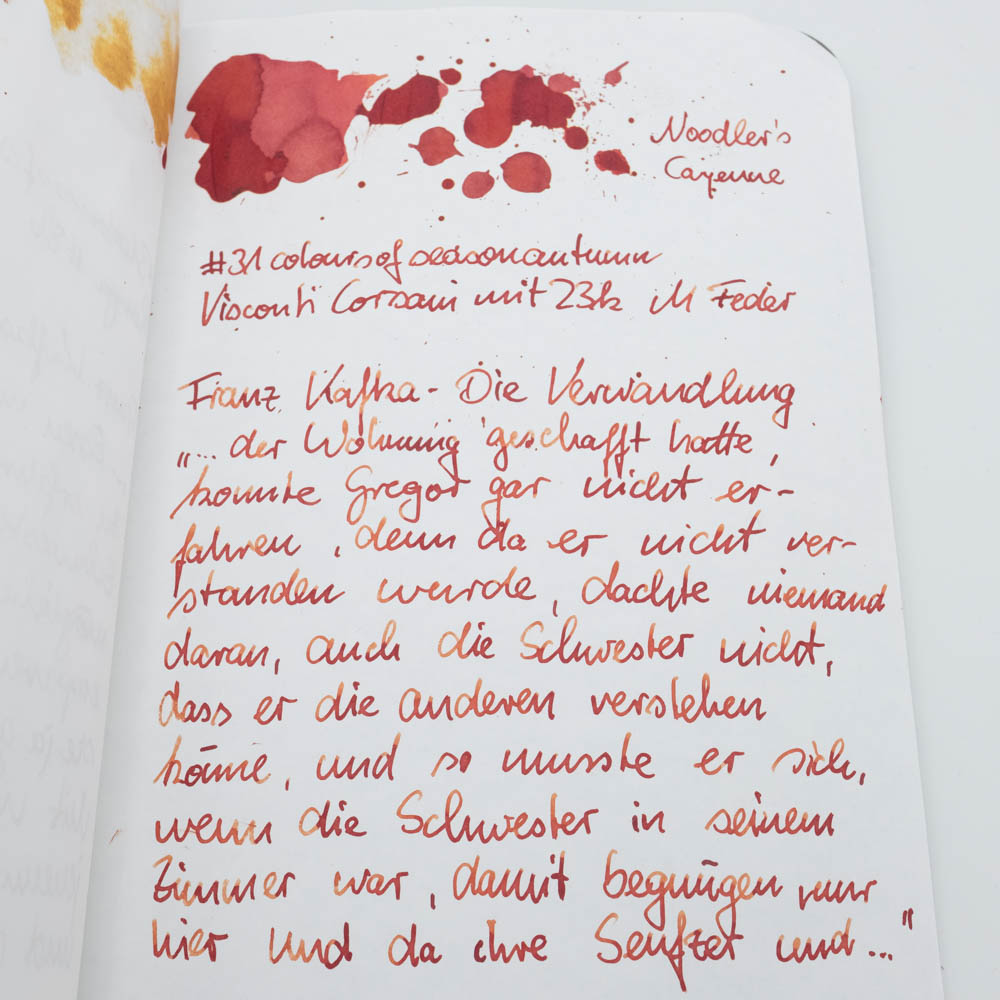 Noodler's
Cayenne
#31coloursofseasonautumn
Visconti Corsani mit 23k M Feder
Franz Kafka - Die Verwandlung
„... der Wohnung geschafft hatte,
konnte Gregor gar nicht er-
fahren, denn da er nicht ver-
standen wurde, dachte niemand
daran, auch die Schwester nicht,
dass er die anderen verstehen
könne, und so musste er sich,
wenn die Schwester in seinem
Zimmer war, damit begnügen nur
hier und da ihre Seufzer und..."